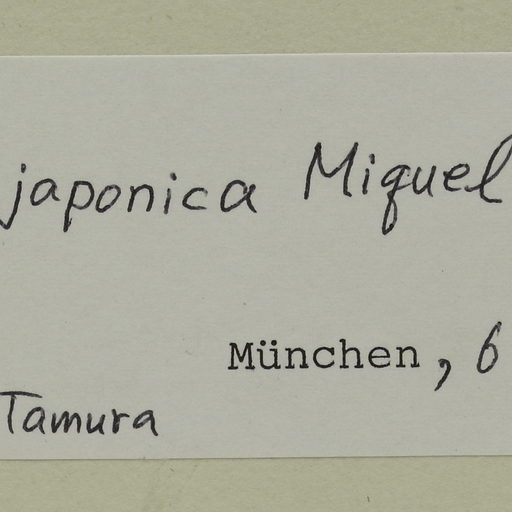 japonica Miquel
München, 6
Tamura